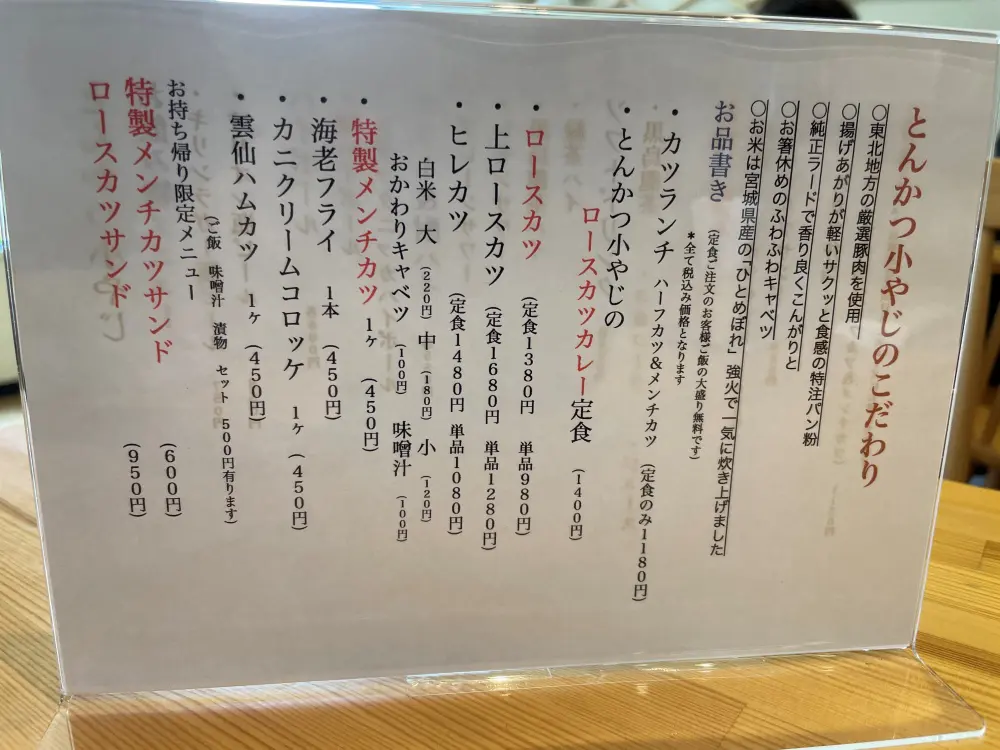 とんかつ小やじのこだわり
○東北地方の厳選豚肉を使用
○揚げあがりが軽いサクッと食感の特注パン粉
○純正ラードで香り良くこんがりと
○お箸休めのふわふわキャベツ
○お米は宮城県産の「ひとめぼれ」強火で一気に炊き上げました
お品書き (定食ご注文のお客様ご飯の大盛り無料です)
*全て税込み価格となります
・カツランチ ハーフカツ&メンチカツ (定食のみ1180円)
・とんかつ小やじの
ロースカツカレー定食 (1400円)
・ロースカツ (定食1380円 単品980円)
・上ロースカツ (定食1680円 単品1280円)
・ヒレカツ (定食1480円 単品1080円)
白米 大 (220円) 中 (180円) 小 (120円)
おかわりキャベツ (100円) 味噌汁 (100円)
・特製メンチカツ 1ヶ (450円)
・海老フライ 1本 (450円)
・カニクリームコロッケ 1ヶ (450円)
・雲仙ハムカツ 1ヶ (450円)
(ご飯 味噌汁 漬物 セット 500円有ります)
お持ち帰り限定メニュー
特製メンチカツサンド (600円)
ロースカツサンド (950円)